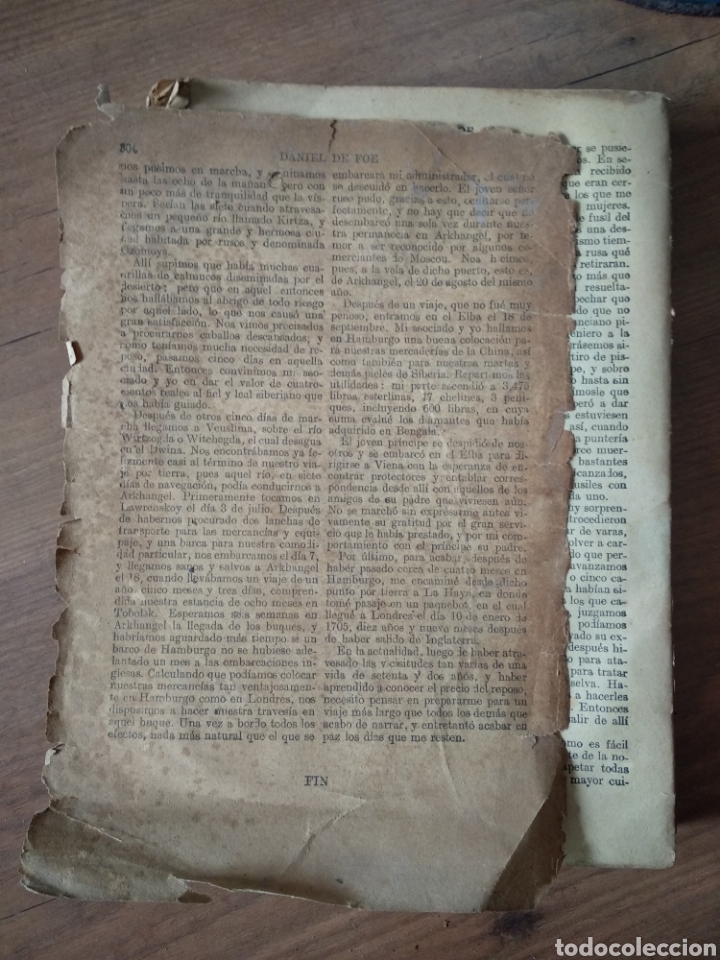 304
DANIEL DE FOE
nos pusimos en marcha, y caminamos
hasta las ocho de la mañana, pero con
un poco más de tranquilidad que la vís-
pera. Serían las siete cuando atravesa-
mos un pequeño río llamado Kirtza, y
llegamos a una grande y hermosa ciu-
dad habitada por rusos y denominada
Ozomoya.
Allí supimos que había muchas cua-
drillas de calmucos diseminadas por el
desierto; pero que en aquel entonces
nos hallábamos al abrigo de todo riesgo
por aquel lado, lo que nos causó una
gran satisfacción. Nos vimos precisados
a procurarnos caballos descansados, y
como teníamos mucha necesidad de re-
poso, pasamos cinco días en aquella
ciudad. Entonces convinimos mi aso-
ciado y yo en dar el valor de cuatro-
cientos reales al fiel y leal siberiano que
nos había guiado.
Después de otros cinco días de mar-
cha llegamos a Veuslima, sobre el río
Wirtzogda o Witchogda, el cual desagua
en el Dwina. Nos encontrábamos ya fe-
lizmente casi al término de nuestro via-
je por tierra, pues aquel río, en siete
días de navegación, podía conducirnos a
Arkhangel. Primeramente tocamos en
Lawrenskoy el día 3 de julio. Después
de habernos procurado dos lanchas de
transporte para las mercancías y equi-
paje, y una barca para nuestra como di-
dad particular, nos embarcamos el día 7,
y llegamos sanos y salvos a Arkhangel
el 18, cuando llevábamos un viaje de un
año, cinco meses y tres días, compren-
dida nuestra estancia de ocho meses en
Tobolsk. Esperamos seis semanas en
Arkhangel la llegada de los buques, y
habríamos aguardado más tiempo si un
barco de Hamburgo no se hubiese ade-
lantado un mes a las embarcaciones in-
glesas. Calculando que podíamos colocar
nuestras mercancías tan ventajosamen-
te en Hamburgo como en Londres, nos
dispusimos a hacer nuestra travesía en
aquel buque. Una vez a bordo todos los
efectos, nada más natural que el que se
embarcara mi administrador, el cual no
se descuidó en hacerlo. El joven señor
ruso pudo, gracias a esto, ocultarse per-
fectamente, y no hay que decir que no
desembarcó una sola vez durante nuestra
permanencia en Arkhangel, por te-
mor a ser reconocido por algunos co-
merciantes de Moscou. Nos hicimos,
pues, a la vela de dicho puerto, esto es,
de Arkhangel, el 20 de agosto del mismo
año.
Después de un viaje, que no fué muy
penoso, entramos en el Elba el 18 de
septiembre. Mi asociado y yo hallamos
en Hamburgo una buena colocación para
nuestras mercaderías de la China, así
como también para nuestras martas y
demás pieles de Siberia. Repartimos las
utilidades: mi parte ascendió a 3,475
libras esterlinas, 17 chelines, 3 peni-
ques, incluyendo 600 libras, en cuya
suma evalué los diamantes que había
adquirido en Bengala.
El joven príncipe se despidió de nos-
otros y se embarcó en el Elba para di-
rigirse a Viena con la esperanza de en-
contrar protectores y entablar corres-
pondencia desde allí con aquellos de los
amigos de su padre que viviesen aún.
No se marchó sin expresarme antes vi-
vamente su gratitud por el gran servi-
cio que le había prestado, y por mi com-
portamiento con el príncipe su padre.
Por último, para acabar, después de
haber pasado cerca de cuatro meses en
Hamburgo, me encaminé desde dicho
punto por tierra a La Haya, en donde
tomé pasaje en un paquebot, en el cual
llegué a Londres el día 10 de enero de
1705, diez años y nueve meses después
de haber salido de Inglaterra.
En la actualidad, luego de haber atra-
vesado las vicisitudes tan varias de una
vida de setenta y dos años, y haber
aprendido a conocer el precio del reposo,
necesito pensar en prepararme para un
viaje más largo que todos los demás que
acabo de narrar, y entretanto acabar en
paz los días que me resten.
FIN
DE
er se pusie-
os. En se-
recibido
que eran cer-
los que me
mujeres.
de fusil del
una des-
ismo tiem-
a rusa qué
retiraran.
o más que
resuelta-
pechar que
do que no
anciano pi-
eniero a la
rásemos si-
tiro de pis-
pe, y sobre
o hasta sin
ímosle que
peró a dar
estuviesen
así, cuando
a puntería
rce muer-
bastantes
canzada, se
usiles con
da uno.
uy sorpren-
trocedieron
ar de varas,
olver a car-
do que per-
avanzamos
o cinco ca-
habían si-
los que ca-
juzgamos
podíamos
vado su ex-
después hi-
o para ata-
para tratar
selva. Ha-
a hacerles
Entonces
alir de allí
omo es fácil
te de la no-
petar todas
mayor cui-
todocoleccion